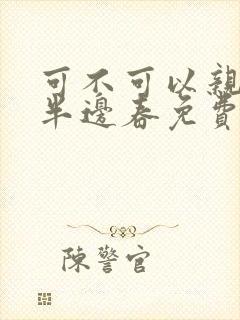 可不可以親
半邊春免費
陳警官